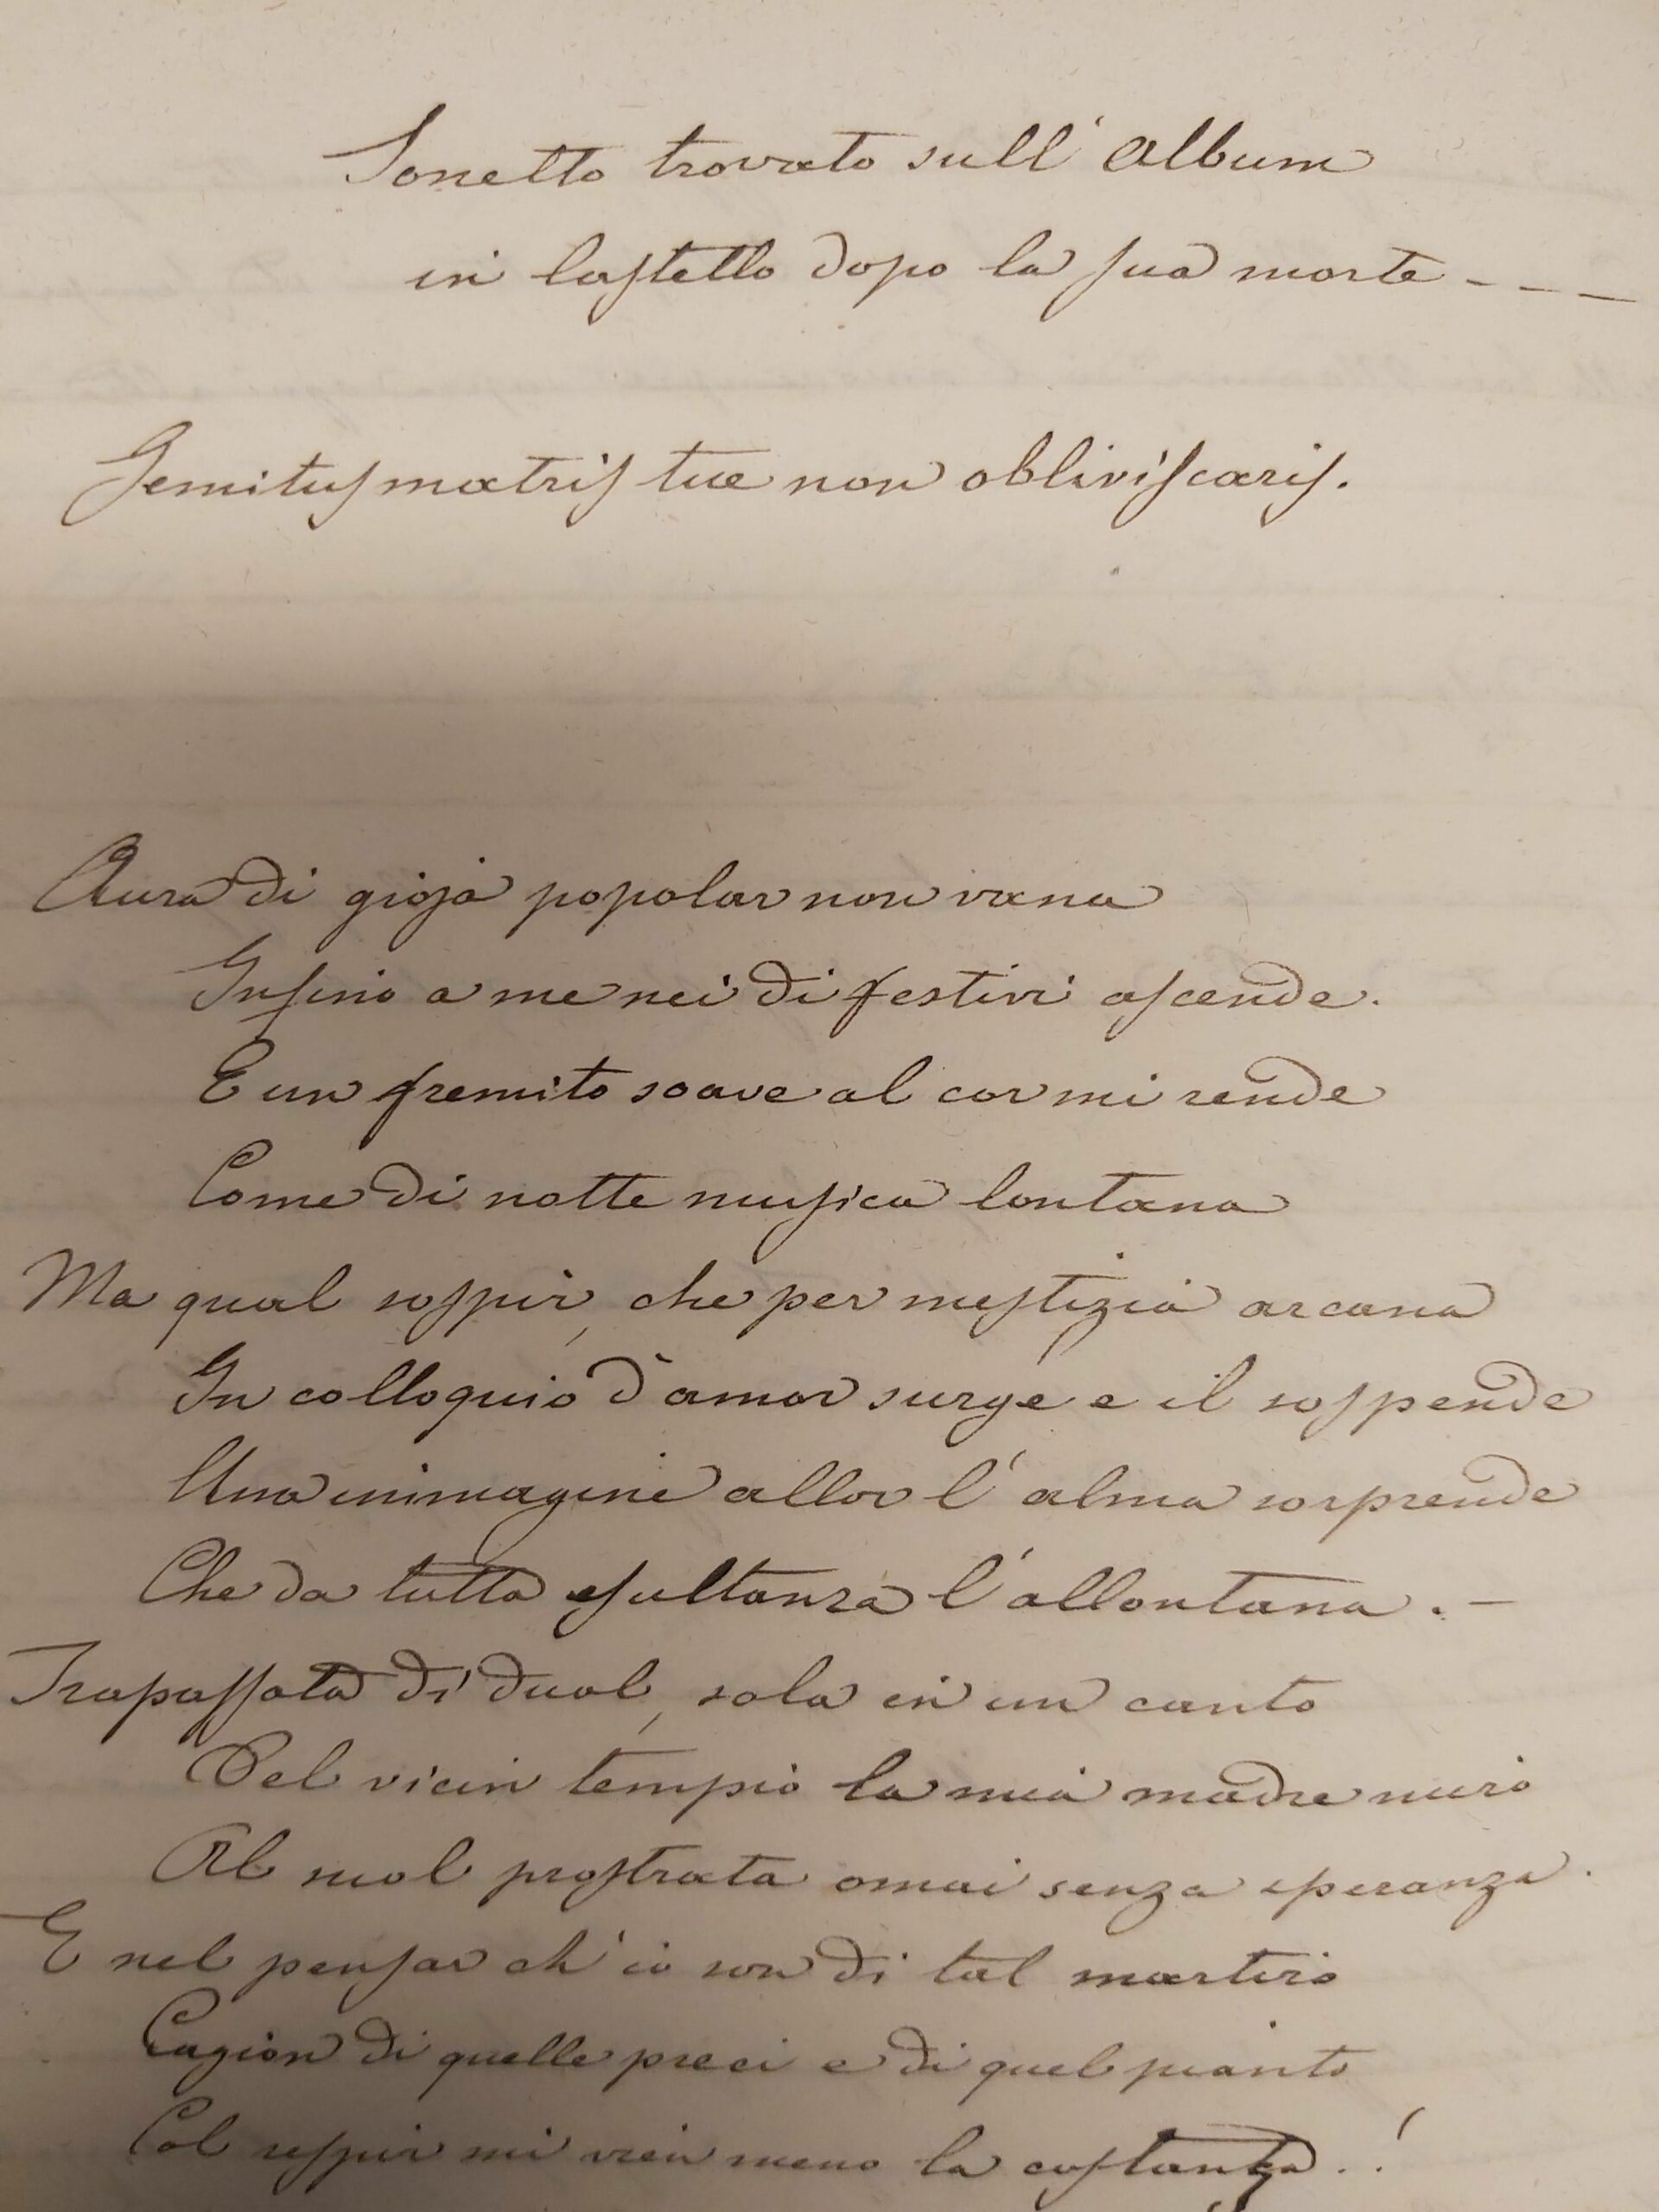 Sonetto trovato sull' Album
in Castello dopo la sua morte - - -
Gemitus matris tue non obliviscaris.
Aura di gioja popolar non vana
Insino a me nei di festivi ascende.
E un fremito soave al cor mi rende
Come di notte musica lontana
Ma qual sospir, che per mestizia arcana
In colloquio d'amor surge e il sospende
Una immagine allor l'alma sorprende
Che da tutta esultanza l'allontana. -
Trapassata di dual, sola in un canto
Del vicin tempio la mia madre miro
Al suol prostrata omai senza speranza.
E nel pensar ch'io son di tal martiro
Cagion di quelle preci e di quel pianto
Col respir mi vien meno la costanza..!